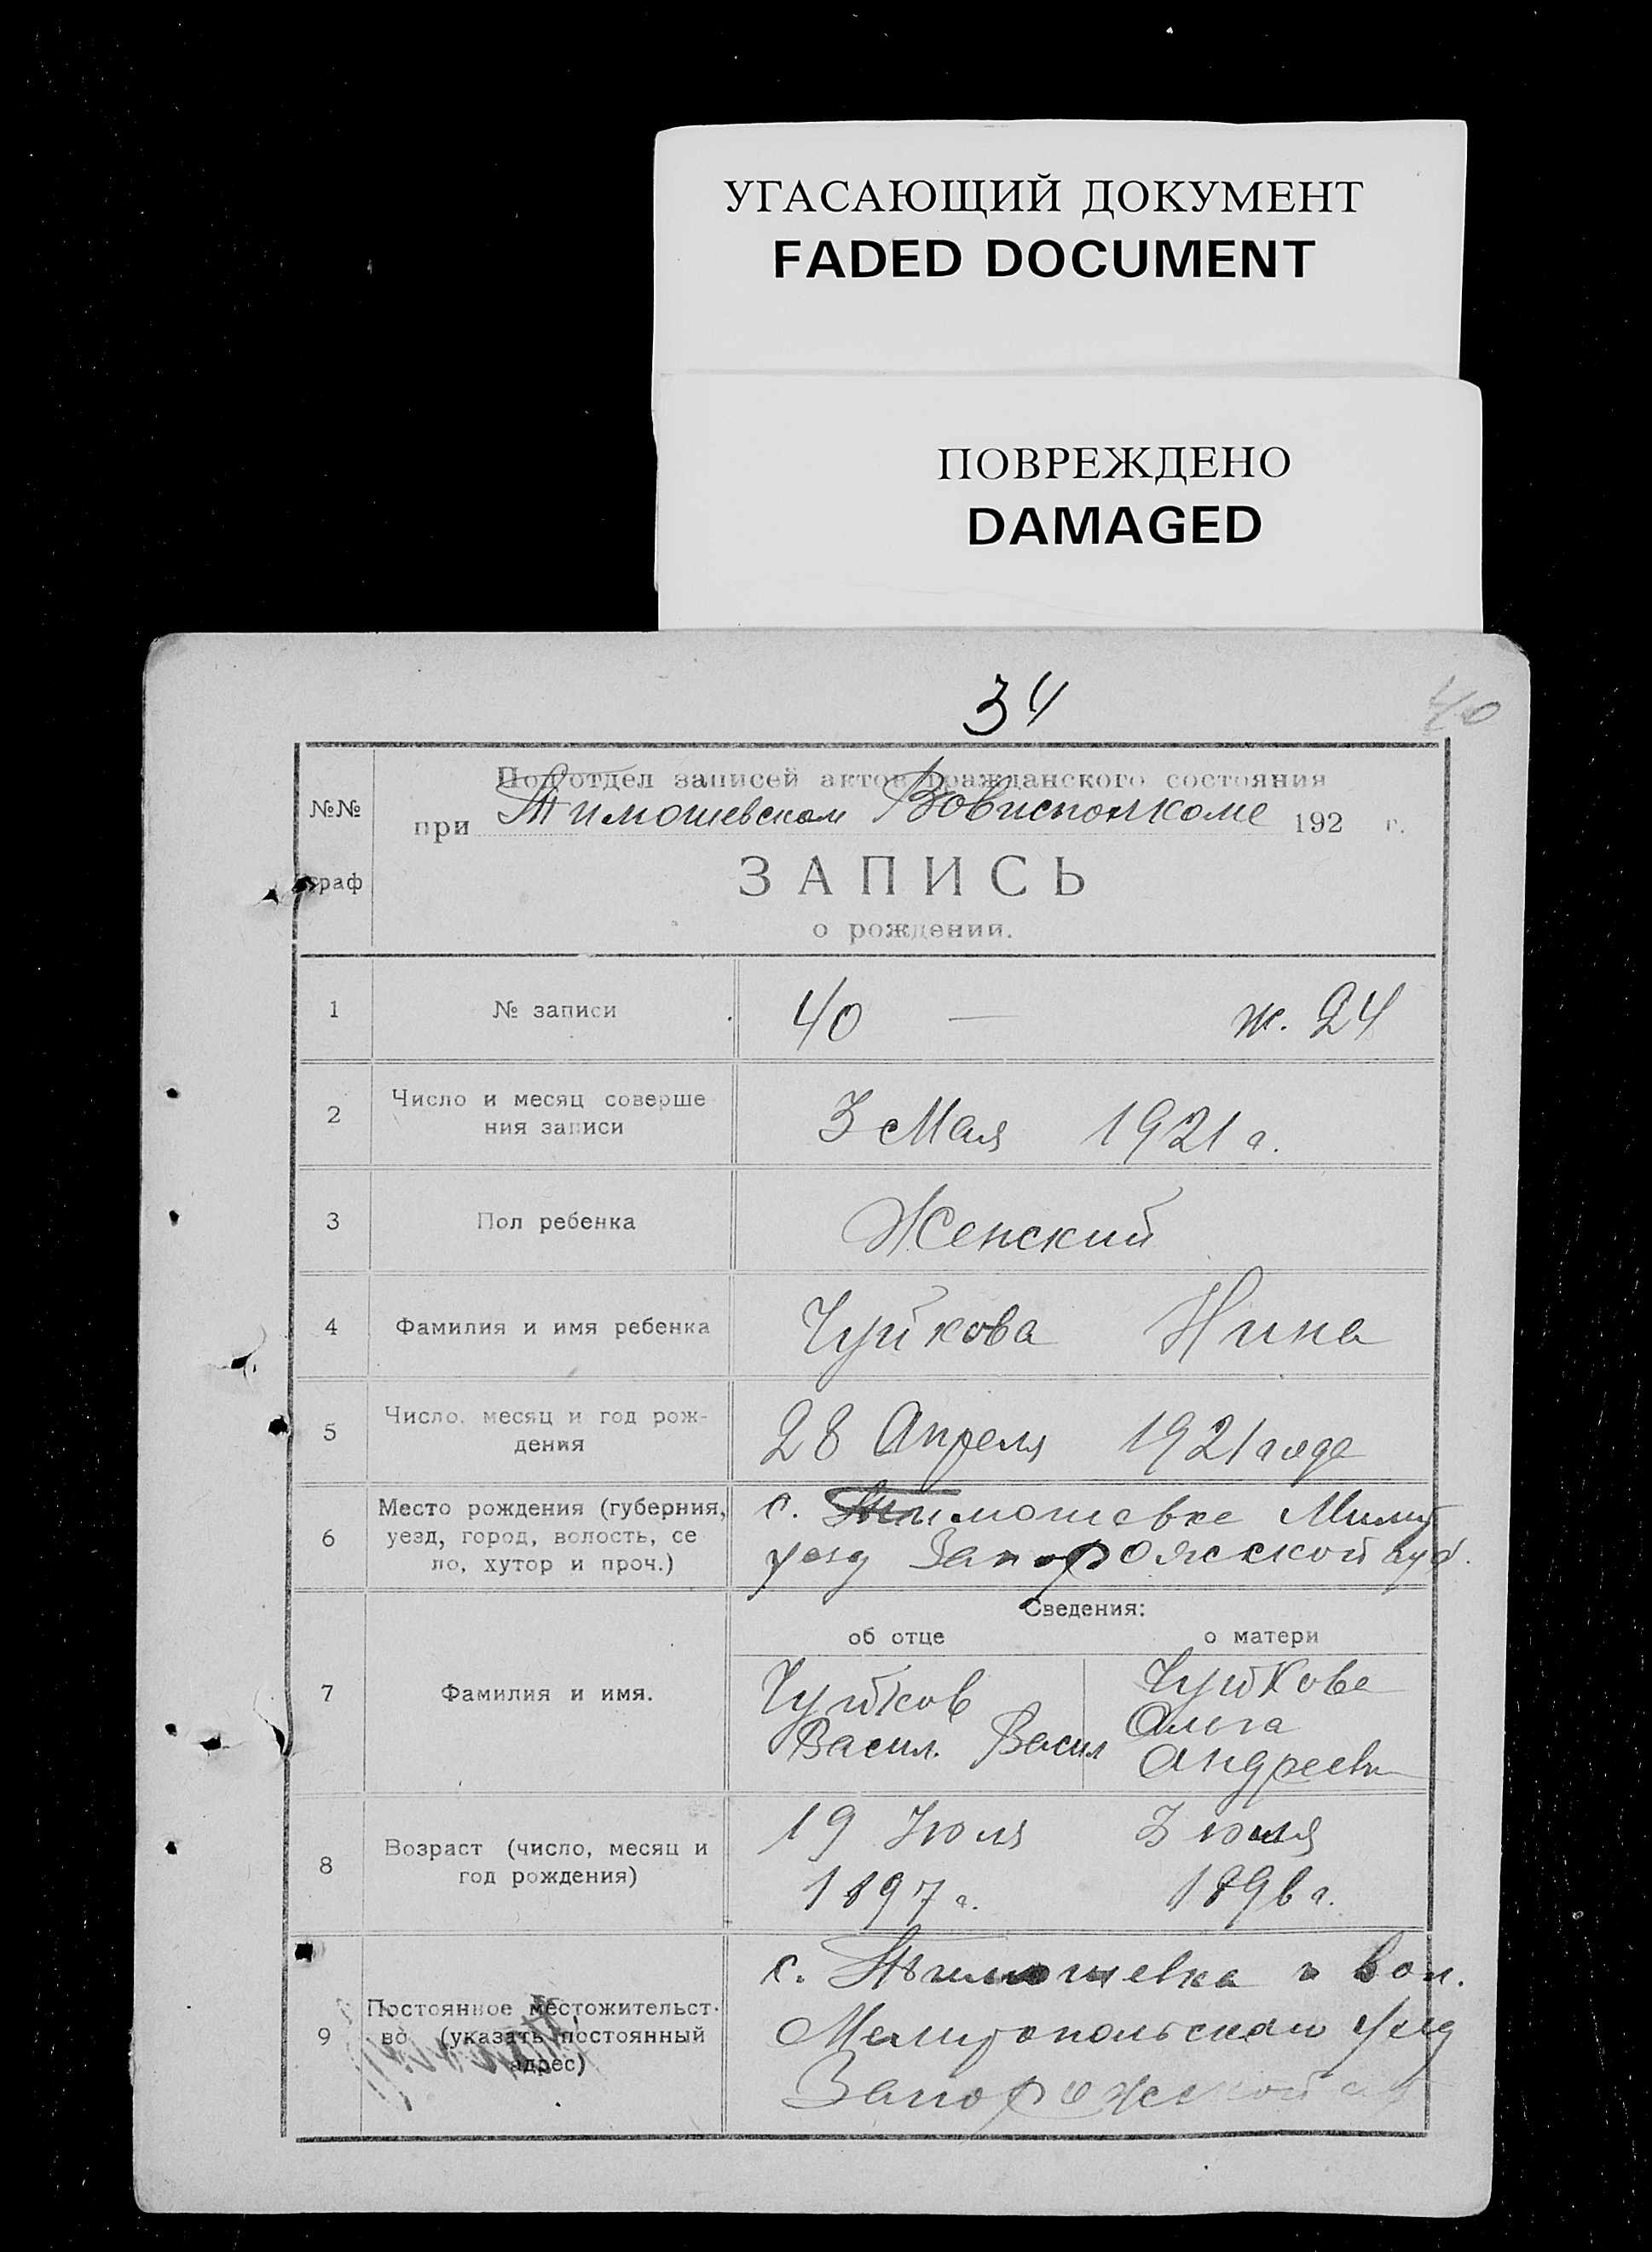 УГАСАЮЩИЙ ДОКУМЕНТ
FADED DOCUMENT
ПОВРЕЖДЕНО
DAMAGED
34
40
Подотдел записей актов гражданского состояния
№№
при Тимошевском Вовисполкоме 192 г.
граф
ЗАПИСЬ
о рождении.
1 № записи 40 — ж. 24
2 Число и месяц соверше
ния записи
3 Мая 1921 г.
3 Пол ребенка Женский
4 Фамилия и имя ребенка Чуйкова Нина
5 Число, месяц и год рож-
дения
28 Апреля 1921 года
6 Место рождения (губерния,
уезд, город, волость, се
ло, хутор и проч.)
с. Тимошевке Мелит
уезд Запорожской губ.
Сведения:
об отце о матери
7 Фамилия и имя.
Чуйков
Васил. Васил
Чуйкова
Ольга
Андреевн
8 Возраст (число, месяц и
год рождения)
19 Июля
1897 г.
3 июля
1896 г.
9 Постоянное местожительст-
во (указать постоянный
адрес)
с. Тимошевка вол.
Мелитопольском уезд
Запорожской